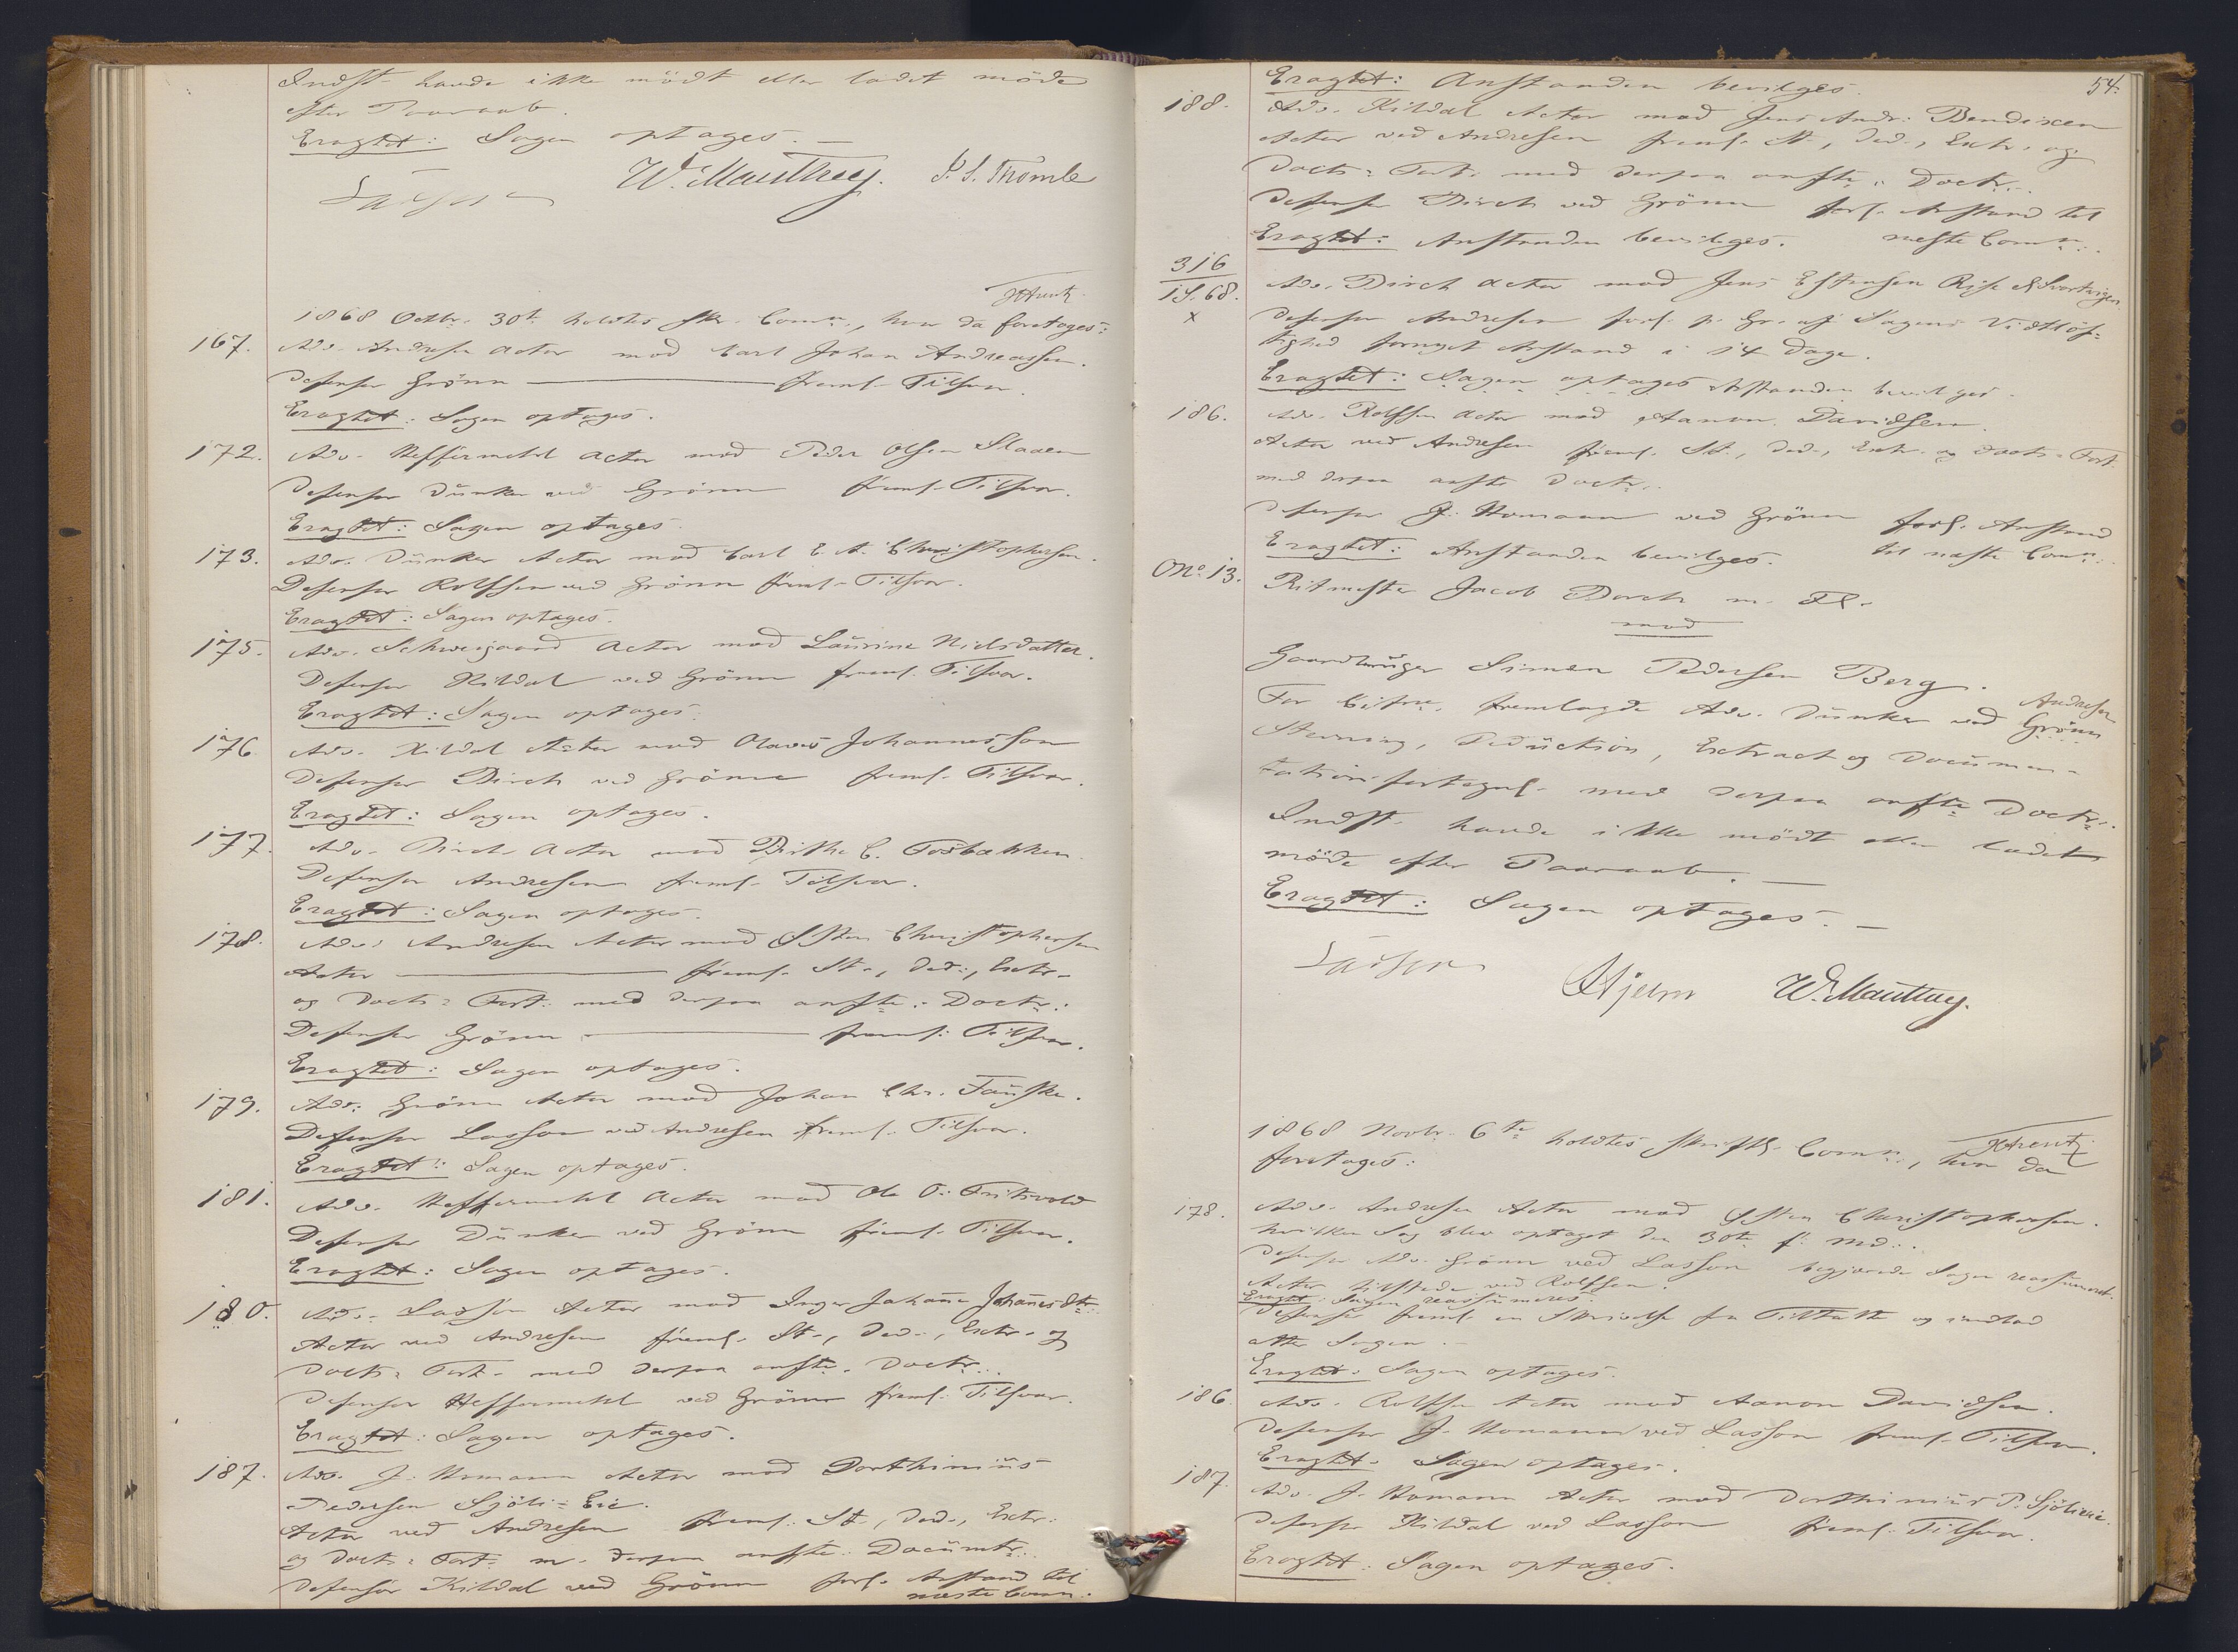 Indst. havde ikke mödt eller ladet möde
efter Paaraab.
Eragtet: Sagen optages. —
Lasson W. Mauthey. P. S. Thomle
HArentz
1868 Octbr. 30te holdtes skr. Comn:, hvor da foretages:
167. Adv. Andresen Actor mod Carl Johan Andreassen.
Defensor Grönn — freml. Tilsvar.
Eragtet: Sagen optages.
172. Adv. Heffermehl Actor mod Peder Olsen Slaaen
Defensor Dunker ved Grönn freml. Tilsvar.
Eragtet: Sagen optages.
173. Adv. Dunker Actor mod Carl E. A. Christophersen.
Defensor Rolfsen ved Grönn freml. Tilsvar.
Eragtet: Sagen optages.
175. Adv. Schweigaard Actor mod Laurine Nielsdatter.
Defensor Kildal ved Grönn freml. Tilsvar.
Eragtet: Sagen optages.
176. Adv. Kildal Actor mod Olaves Johannesson
Defensor Birch ved Grönn freml. Tilsvar.
Eragtet: Sagen optages.
177. Adv. Birch Actor mod Birthe C. Fosbakken
Defensor Andresen freml. Tilsvar.
Eragtet: Sagen optages.
178. Adv. Andresen Actor mod Christophersen
Actor — freml. St., Ded., Extr.
og Docts: Fort. med derpaa anfte: Doctr:
Defensor Grönn — freml. Tilsvar.
Eragtet: Sagen optages.
179. Adv. Grönn Actor mod Johan Chr. Fauske.
Defensor Lasson ved Andresen freml. Tilsvar.
Eragtet: Sagen optages.
181. Adv. Heffermehl Actor mod Ole O. Fritsvold
Defensor Dunker ved Grönn freml. Tilsvar.
Eragtet: Sagen optages.
180. Adv. Lasson Actor mod Inger Johanne Johannesdtr:
Actor ved Andresen freml. St., Ded., Extr. og
Docts: Fort. med derpaa anfte. Doctr:.
Defensor Heffermehl ved Grönn freml. Tilsvar.
Eragtet: Sagen optages.
187. Adv. J. Homann Actor mod Dorthinius
Pedersen Sjöli=Eie.
Actor ved Andresen freml. St., Ded., Extr.
og Docts: Fort. m. derpaa anfte. Documtr:
Defensor Kildal ved Grönn forl. Anstand til
næste Comn:
54.
Eragtet: Anstanden bevilges.
188. Adv. Kildal Actor mod Jens Andr. Bendixen
Actor ved Andresen freml. St., Ded., Extr. og
Docts: Fort. med derpaa anfte: Doctr:.
Defensor Birch ved Grönn forl. Anstand til
Eragtet: Anstanden bevilges. næste Comn:
316
1S. 68. Adv. Birch Actor mod Jens Estensen
x Defensor Andresen forl. p. Gr. af Sagens Vidtlöf=
tighed fornyet Anstand i 14 Dage.
Eragtet: Sagen optages Anstanden bevilges.
186. Adv. Rolfsen Actor mod Aanon Davidsen.
Actor ved Andresen freml. St., Ded., Extr. og Docts: Fort.
med derpaa anfte Doctr:.
Defensor J. Homann ved Grönn forl. Anstand
Eragtet: Anstanden bevilges. til næste Comn:
No. 13. Ritmester Jacob Borch m. Fl.
mod
Gaardbruger Simen Pedersen Berg.
Andresen
For Citne. fremlagde Adv. Dunker ved Grönn
Stevning, Deduction, Extract og Documen-
tationsfortegnl. med derpaa anfte Doctr:.
Indst. havde ikke mödt eller ladet
möde efter Paaraab. —
Eragtet: Sagen optages. —
Lasson Hjelm W. Mauthey.
HArentz
1868 Novbr. 6te holdtes skriftl. Comn:, hvor da
foretages:
178. Adv. Andresen Actor mod Christophersen.
hvilken Sag blev optaget den 30te f. Md.
Defensor Adv. Grönn ved Lasson begjærede Sagen reassumeret.
Actor tilstede ved Rolfsen.
Eragtet: Sagen reassumeres.
Defensor freml. en Skrivelse fra Tiltalte og indlod
atter Sagen. —
Eragtet: Sagen optages.
186. Adv. Rolfsen Actor mod Aanon Davidsen.
Defensor J. Homann ved Lasson freml. Tilsvar.
Eragtet: Sagen optages.
187. Adv. J. Homann Actor mod Dorthinius P. Sjölieie.
Defensor Kildal ved Lasson freml. Tilsvar.
Eragtet: Sagen optages.